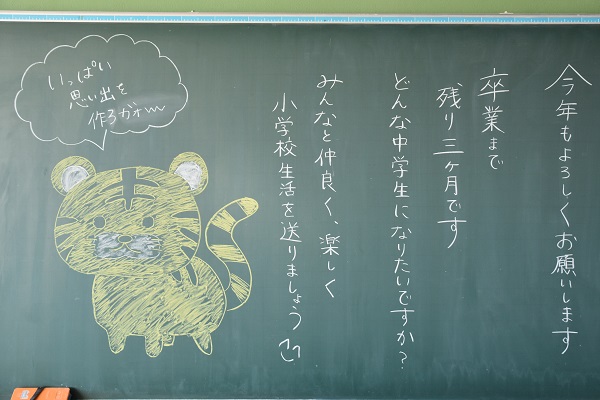 今年もよろしくお願いします
卒業まで
残り三ヶ月です
どんな中学生になりたいですか?
みんなと仲良く、楽しく
小学校生活を送りましょう
いっぱい
思い出を
作るガオ〜